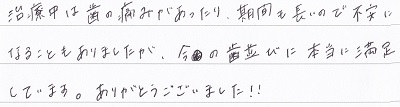 治療中は歯の痛みがあったり、期間も長いので不安に
なることもありましたが、今の歯並びに本当に満足
しています。ありがとうございました!!